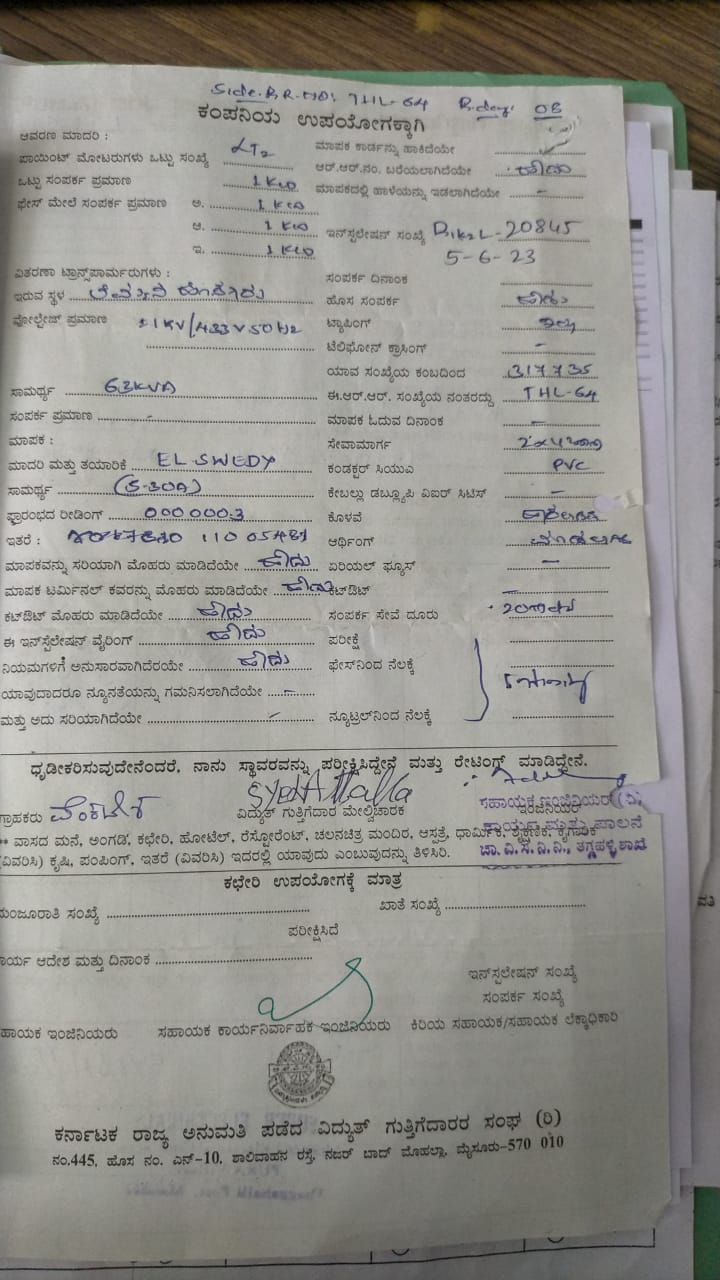 Side.R.R.NO: THL-64 R.day: 08
ಕಂಪನಿಯ ಉಪಯೋಗಕ್ಕಾಗಿ
ಆವರಣ ಮಾದರಿ :
ಮಾಪಕ ಕಾರ್ಡನ್ನು ಹಾಕಿದೆಯೇ
ಪಾಯಿಂಟ್ ಮೋಟರುಗಳು ಒಟ್ಟು ಸಂಖ್ಯೆ LT2 ಆರ್.ಆರ್.ನಂ. ಬರೆಯಲಾಗಿದೆಯೇ ಹೌದು
ಒಟ್ಟು ಸಂಪರ್ಕ ಪ್ರಮಾಣ 1 KW ಮಾಪಕದಲ್ಲಿ ಹಾಳೆಯನ್ನು ಇಡಲಾಗಿದೆಯೇ -
ಫೇಸ್ ಮೇಲೆ ಸಂಪರ್ಕ ಪ್ರಮಾಣ ಅ. 1 KW
ಆ. 1 KW ಇನ್‌ಸ್ಟಲೇಷನ್ ಸಂಖ್ಯೆ 20845
ಇ. 1 KW 5-6-23
ವಿತರಣಾ ಟ್ರಾನ್ಸ್‌ಪಾರ್ಮರುಗಳು : ಸಂಪರ್ಕ ದಿನಾಂಕ
ಇರುವ ಸ್ಥಳ ಹೊಸ ಸಂಪರ್ಕ ಹೌದು
ವೋಲ್ಟೇಜ್ ಪ್ರಮಾಣ 11KV/433V 50Hz ಟ್ಯಾಪಿಂಗ್ ಇಲ್ಲ
ಟೆಲಿಫೋನ್ ಕ್ರಾಸಿಂಗ್ -
ಯಾವ ಸಂಖ್ಯೆಯ ಕಂಬದಿಂದ 317735
ಸಾಮರ್ಥ್ಯ 63KVA ಈ.ಆರ್.ಆರ್. ಸಂಖ್ಯೆಯ ನಂತರದ್ದು THL-64
ಸಂಪರ್ಕ ಪ್ರಮಾಣ - ಮಾಪಕ ಓದುವ ದಿನಾಂಕ -
ಮಾಪಕ : ಸೇವಾಮಾರ್ಗ
ಮಾದರಿ ಮತ್ತು ತಯಾರಿಕೆ EL SWEDY ಕಂಡಕ್ಟರ್ ಸಿಯುಎ PVC
ಸಾಮರ್ಥ್ಯ (5-30A) ಕೇಬಲ್ಲು ಡಬ್ಲ್ಯೂಪಿ ವಿಐರ್ ಸಿಟಿಸ್ -
ಪ್ರಾರಂಭದ ರೀಡಿಂಗ್ 000000.3 ಕೊಳವೆ
ಇತರೆ : ಆರ್ಥಿಂಗ್
ಮಾಪಕವನ್ನು ಸರಿಯಾಗಿ ಮೊಹರು ಮಾಡಿದೆಯೇ ಹೌದು ಏರಿಯಲ್ ಫ್ಯೂಸ್ -
ಮಾಪಕ ಟರ್ಮಿನಲ್ ಕವರನ್ನು ಮೊಹರು ಮಾಡಿದೆಯೇ ಹೌದು ಕಟ್‌ಔಟ್ -
ಕಟ್‌ಔಟ್ ಮೊಹರು ಮಾಡಿದೆಯೇ ಹೌದು ಸಂಪರ್ಕ ಸೇವೆ ದೂರು
ಈ ಇನ್‌ಸ್ಟಲೇಷನ್ ವೈರಿಂಗ್ ಹೌದು ಪರೀಕ್ಷೆ
ನಿಯಮಗಳಿಗೆ ಅನುಸಾರವಾಗಿದೆರಯೇ ಹೌದು ಫೇಸ್‌ನಿಂದ ನೆಲಕ್ಕೆ
ಯಾವುದಾದರೂ ನ್ಯೂನತೆಯನ್ನು ಗಮನಿಸಲಾಗಿದೆಯೇ -
ಮತ್ತು ಅದು ಸರಿಯಾಗಿದೆಯೇ - ನ್ಯೂಟ್ರಲ್‌ನಿಂದ ನೆಲಕ್ಕೆ
ಧೃಡೀಕರಿಸುವುದೇನೆಂದರೆ, ನಾನು ಸ್ಥಾವರವನ್ನು ಪರೀಕ್ಷಿಸಿದ್ದೇನೆ ಮತ್ತು ರೇಟಿಂಗ್ ಮಾಡಿದ್ದೇನೆ.
ಗ್ರಾಹಕರು ವೆಂಕಟೇಶ ವಿದ್ಯುತ್ ಗುತ್ತಿಗೆದಾರ ಮೇಲ್ವಿಚಾರಕ ಸಹಾಯಕ ಇಂಜಿನಿಯರ್ (ವಿ)
ಇಂಜಿನಿಯರು
ಕಾರ್ಯ ಮತ್ತು ಪಾಲನೆ
** ವಾಸದ ಮನೆ, ಅಂಗಡಿ, ಕಛೇರಿ, ಹೋಟೆಲ್, ರೆಸ್ಟೋರೆಂಟ್, ಚಲನಚಿತ್ರ ಮಂದಿರ, ಆಸ್ಪತ್ರೆ, ಧಾರ್ಮಿಕ, ಶೈಕ್ಷಣಿಕ, ಕೈಗಾರಿಕೆ
(ವಿವರಿಸಿ) ಕೃಷಿ, ಪಂಪಿಂಗ್, ಇತರೆ (ವಿವರಿಸಿ) ಇದರಲ್ಲಿ ಯಾವುದು ಎಂಬುವುದನ್ನು ತಿಳಿಸಿರಿ. ಚಾ.ವಿ.ಸ.ನಿ.ನಿ., ತಗ್ಗಹಳ್ಳಿ ಶಾಖೆ
ಕಛೇರಿ ಉಪಯೋಗಕ್ಕೆ ಮಾತ್ರ
ಮಂಜೂರಾತಿ ಸಂಖ್ಯೆ ಖಾತೆ ಸಂಖ್ಯೆ
ಪರೀಕ್ಷಿಸಿದೆ
ಕಾರ್ಯ ಆದೇಶ ಮತ್ತು ದಿನಾಂಕ
ಇನ್‌ಸ್ಟಲೇಷನ್ ಸಂಖ್ಯೆ
ಸಂಪರ್ಕ ಸಂಖ್ಯೆ
ಸಹಾಯಕ ಇಂಜಿನಿಯರು ಸಹಾಯಕ ಕಾರ್ಯನಿರ್ವಾಹಕ ಇಂಜಿನಿಯರು ಕಿರಿಯ ಸಹಾಯಕ/ಸಹಾಯಕ ಲೆಕ್ಕಾಧಿಕಾರಿ
ಕರ್ನಾಟಕ ರಾಜ್ಯ ಅನುಮತಿ ಪಡೆದ ವಿದ್ಯುತ್ ಗುತ್ತಿಗೆದಾರರ ಸಂಘ (ರಿ)
ನಂ.445, ಹೊಸ ನಂ. ಎನ್-10, ಶಾಲಿವಾಹನ ರಸ್ತೆ, ನಜರ್ ಬಾದ್ ಮೊಹಲ್ಲಾ, ಮೈಸೂರು-570 010